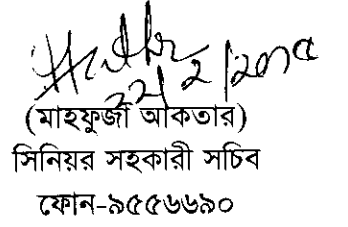 ২২/২/২০১৫
(মাহফুজা আকতার)
সিনিয়র সহকারী সচিব
ফোন-৯৫৫৬৬৯০